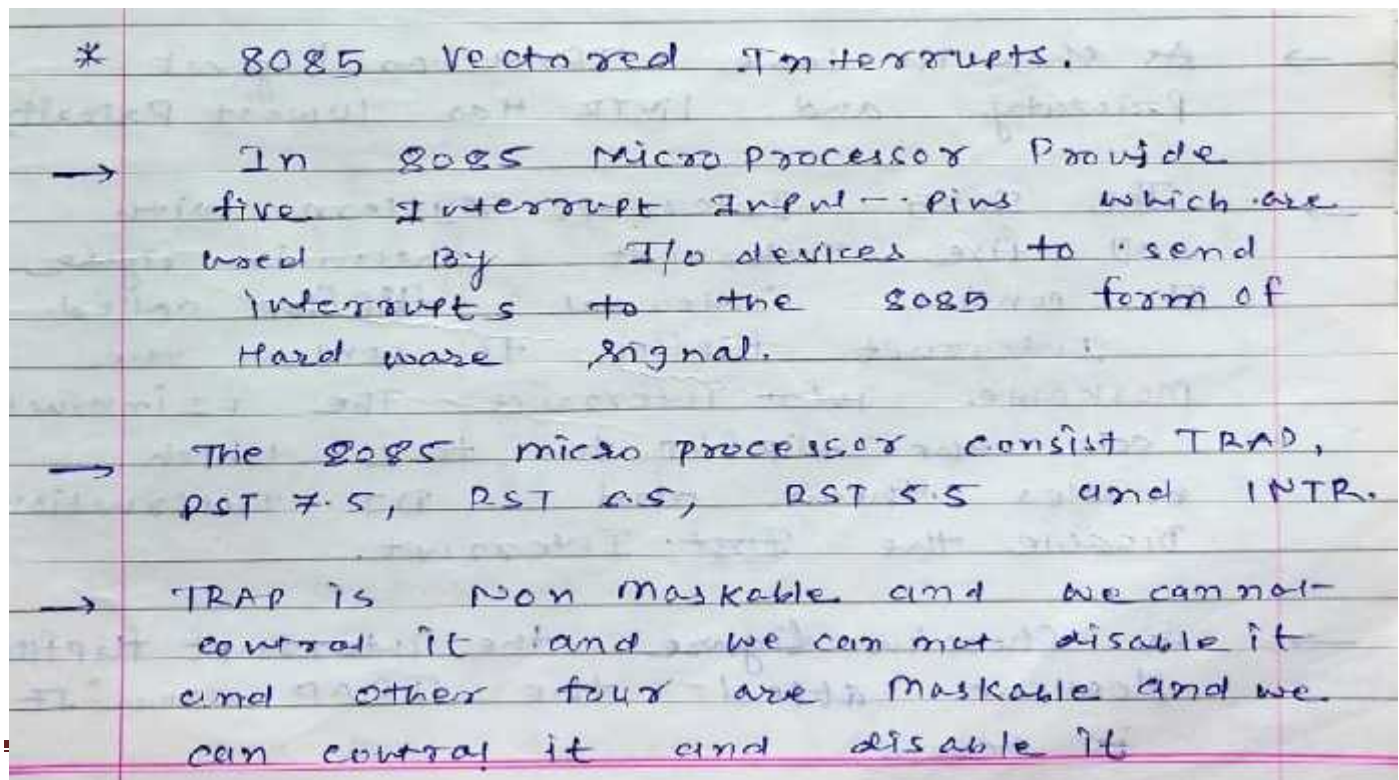 * 8085 Vectored Interrupts.
→ In 8085 Micro processor Provide
five Interrupt Input -- Pins which are
used By I/o devices to send
interrupts to the 8085 form of
Hard ware signal.
→ The 8085 micro processor consist TRAP,
RST 7.5, RST 6.5, RST 5.5 and INTR.
→ TRAP is Non Maskable and we can not
control it and we can not disable it
and other four are Maskable and we
can control it and disable it